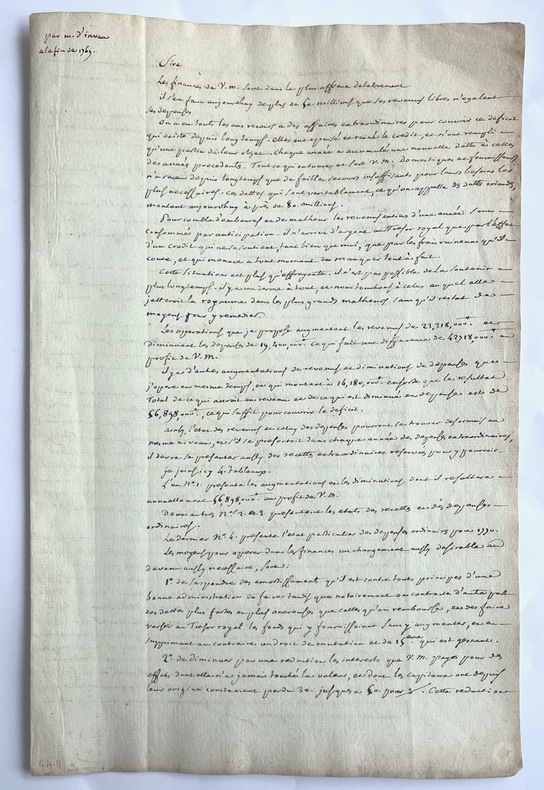 par m. d'invau
a la fin de 1769.
Sire
Les finances de V. M. sont dans le plus affreux delabrement
il s'en faut aujourdhuy de plus de 50 millions que les revenus libres n'egalent
les depenses
On a eu toute les ans recours a des affaires extraordinaires pour couvrir ce deficit
qui existe depuis longtemps. elles ont epuisé et ruiné le credit, et n'ont rempli
qu'une partie de leur objet. chaque année a accumulé une nouvelle dette a celles
des années precedentes. Tout ce qui entoure et sert V. M. domestiques et fournisseurs
n'a recu depuis longtemps que de foibles secours insuffisants pour leurs besoins les
plus necessaires. Ces dettes qui sont veritablement, ce qu'on appelle des dettes criardes
montent aujourdhuy a près de 80. millions.
Pour comble d'embarras et de malheur les revenus entiers d'une année sont
consommés par anticipation. il n'arrive d'argent au Tresor royal que par l'effet
d'un credit qui ne se soutient, tant bien que mal, que par les frais ruineux qu'il
coute, et qui menace a tout moment de manquer tout a fait.
Cette situation est plus qu'effrayante. il n'est pas possible de la soutenir
plus longtemps. il y a un terme a tout, et nous touchons a celuy au quel elle
jetteroit le royaume dans les plus grands malheurs sans qu'il restat de
moyens pour y remedier.
Les operations que je propose augmentent les revenus de 23,318,000.# et
diminuent les depenses de 19,400,000.# ce qui fait une difference de 42718,000.# au
profit de V. M.
il y a d'autres augmentations de revenus et diminutions de depenses que
j'opere en meme temps, ce qui montent a 14,180,000.# ensorte que le resultat
total de ce qui accroit en revenu et de ce qui est diminué en depenses est de
56,898,000.#, ce qui suffit pour couvrir le deficit.
ainsy, l'etat des revenus et celuy des depenses pourront se trouver desormais au
meme niveau, et s'il se presentoit dans chaque année de depenses extraordinaires,
il devra se presenter aussy des recettes extraordinaires reservées pour y pourvoir.
je joins icy 4. tableaux.
L'un N.º 1. presente les augmentations et les diminutions dont il resultera
annuellement 56,898,000.# au profit de V. M.
Deux autres N.os 2. et 3. presentent les etats des recettes et des depenses
ordinaires.
Le dernier N.º 4. presente l'etat particulier des depenses ordinaires pour 1770.
Les moyens pour operer dans les finances un changement aussy desirable et
devenu aussy necessaire, sont:
1.º de suspendre des remboursements qu'il est contre tous principes d'une
bonne administration de faire tandis que notoirement on contracte d'autre part
des dettes plus fortes et plus onereuses que celles qu'on rembourse, et de faire
verser au Tresor royal les fonds qui y fournissoient sans y augmenter, et en
supprimant au contraire un droit de mutation et de 15.eme qui est genant.
2.º de diminuer par une reduction les interets que V. M. payes pour des
effets dont elle n'a jamais touché la valeur, et dont les capitaux ont depuis
leur origine constament perdu 30. jusques a 50. pour %. Cette reduction